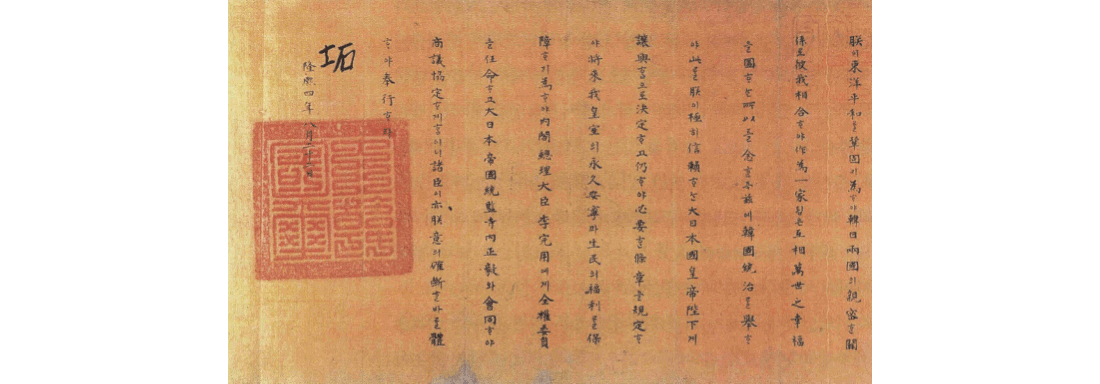 朕이東洋平和를鞏固히爲ᄒᆞ야韓日兩國의親密ᄒᆞᆫ關
係로彼我相合ᄒᆞ야作爲一家ᄒᆞᆷ은互相萬世之幸福
을圖ᄒᆞᄂᆞᆫ所以를念ᄒᆞᆫ즉玆에韓國統治를擧ᄒᆞ
야此를朕이極히信賴ᄒᆞᄂᆞᆫ大日本國皇帝陛下게
讓與ᄒᆞᆷ으로決定ᄒᆞ고仍ᄒᆞ야必要ᄒᆞᆫ條章을規定ᄒᆞ
야將來我皇室의永久安寧과生民의福利를保
障ᄒᆞ기爲ᄒᆞ야內閣總理大臣李完用에게全權委員
을任命ᄒᆞ고大日本帝國統監寺內正毅와會同ᄒᆞ야
商議協定케ᄒᆞᆷ이니諸臣이亦朕意의確斷ᄒᆞᆫ바를體
ᄒᆞ야奉行ᄒᆞ라
坧
隆熙四年八月二十二日